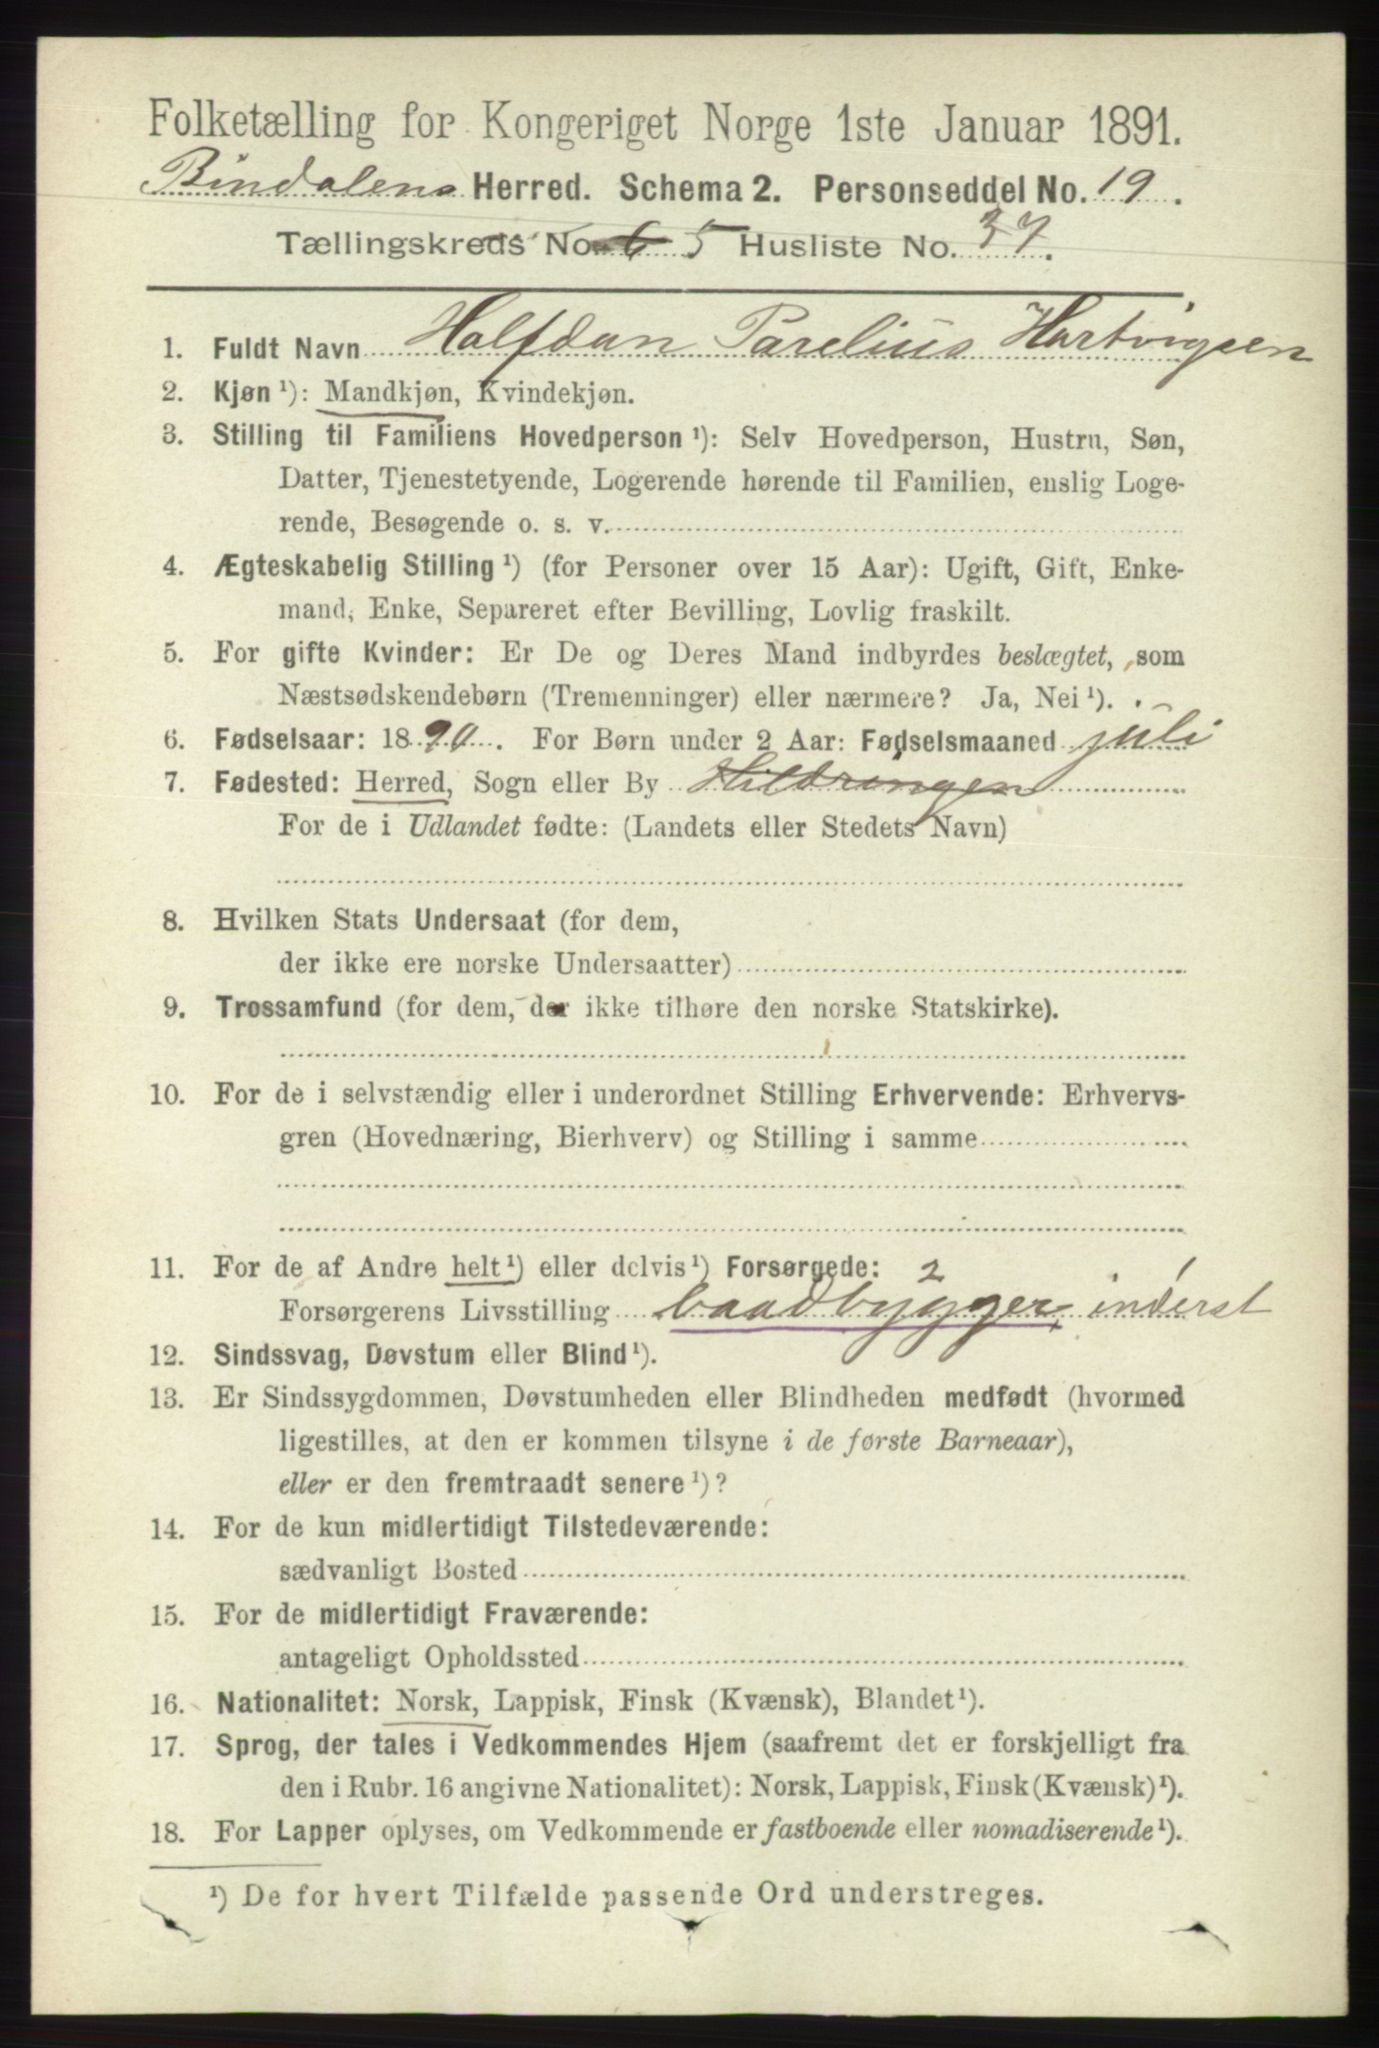 Folketælling for Kongeriget Norge 1ste Januar 1891.
Bindalens Herred. Schema 2. Personseddel No. 19.
Tællingskreds No. 6 5 Husliste No. 37.
1. Fuldt Navn Halfdan Parelius Hartvigsen
2. Kjøn ¹): Mandkjøn, Kvindekjøn.
3. Stilling til Familiens Hovedperson ¹): Selv Hovedperson, Hustru, Søn,
Datter, Tjenestetyende, Logerende hørende til Familien, enslig Loge-
rende, Besøgende o. s. v.
4. Ægteskabelig Stilling ¹) (for Personer over 15 Aar): Ugift, Gift, Enke-
mand, Enke, Separeret efter Bevilling, Lovlig fraskilt.
5. For gifte Kvinder: Er De og Deres Mand indbyrdes beslægtet, som
Næstsødskendebørn (Tremenninger) eller nærmere? Ja, Nei ¹).
6. Fødselsaar: 1890. For Børn under 2 Aar: Fødselsmaaned juli
7. Fødested: Herred, Sogn eller By Hildringen
For de i Udlandet fødte: (Landets eller Stedets Navn)
8. Hvilken Stats Undersaat (for dem,
der ikke ere norske Undersaatter)
9. Trossamfund (for dem, der ikke tilhøre den norske Statskirke).
10. For de i selvstændig eller i underordnet Stilling Erhvervende: Erhvervs-
gren (Hovednæring, Bierhverv) og Stilling i samme
11. For de af Andre helt ¹) eller delvis ¹) Forsørgede: 2
Forsørgerens Livsstilling baadbygger, inderst
12. Sindssvag, Døvstum eller Blind ¹).
13. Er Sindssygdommen, Døvstumheden eller Blindheden medfødt (hvormed
ligestilles, at den er kommen tilsyne i de første Barneaar),
eller er den fremtraadt senere ¹)?
14. For de kun midlertidigt Tilstedeværende:
sædvanligt Bosted
15. For de midlertidigt Fraværende:
antageligt Opholdssted
16. Nationalitet: Norsk, Lappisk, Finsk (Kvænsk), Blandet ¹).
17. Sprog, der tales i Vedkommendes Hjem (saafremt det er forskjelligt fra
den i Rubr. 16 angivne Nationalitet): Norsk, Lappisk, Finsk (Kvænsk) ¹).
18. For Lapper oplyses, om Vedkommende er fastboende eller nomadiserende ¹).
¹) De for hvert Tilfælde passende Ord understreges.